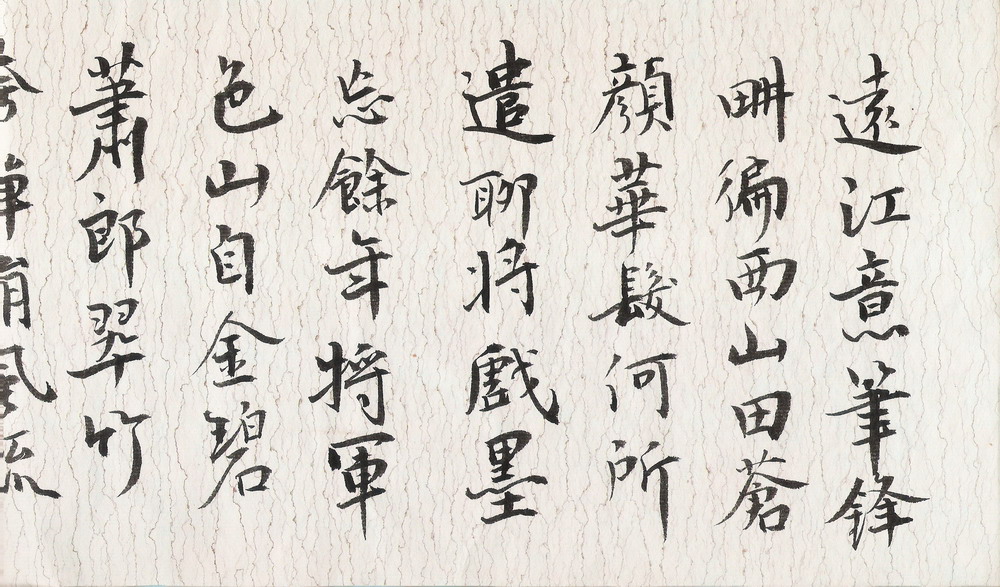 遠江意筆鋒
畊徧西山田蒼
顏華髮何所
遣聊將戲墨
忘餘年將軍
色山自金碧
蕭郎翠竹
夸車有風流